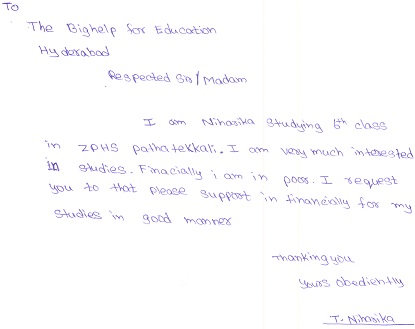 To
The Bighelp for Education
Hyderabad
Respected Sir/Madam
I am Niharika studying 6th class
in ZPHS pathatekkali. I am very much interested
in studies. Finacially i am in poor. I request
you to that please support in financially for my
studies in good manner
Thanking you
yours obediently
T. Niharika